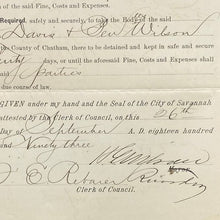 said Fine, Costs and Expenses.
Required, safely and securely, to take the Body of the said
Davis & Geo Wilson
the County of Chatham, there to be detained and kept in safe and secure
days, or until the aforesaid Fine, Costs and Expenses shall
said Parties
due course of law.
GIVEN under my hand and the Seal of the City of Savannah
attested by the Clerk of Council, on this 26th
Day of September A. D. eighteen hundred
and Ninety three
MAYOR.
J E
Clerk of Council.